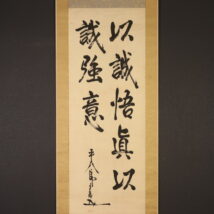 以誠悟眞以
誠強意